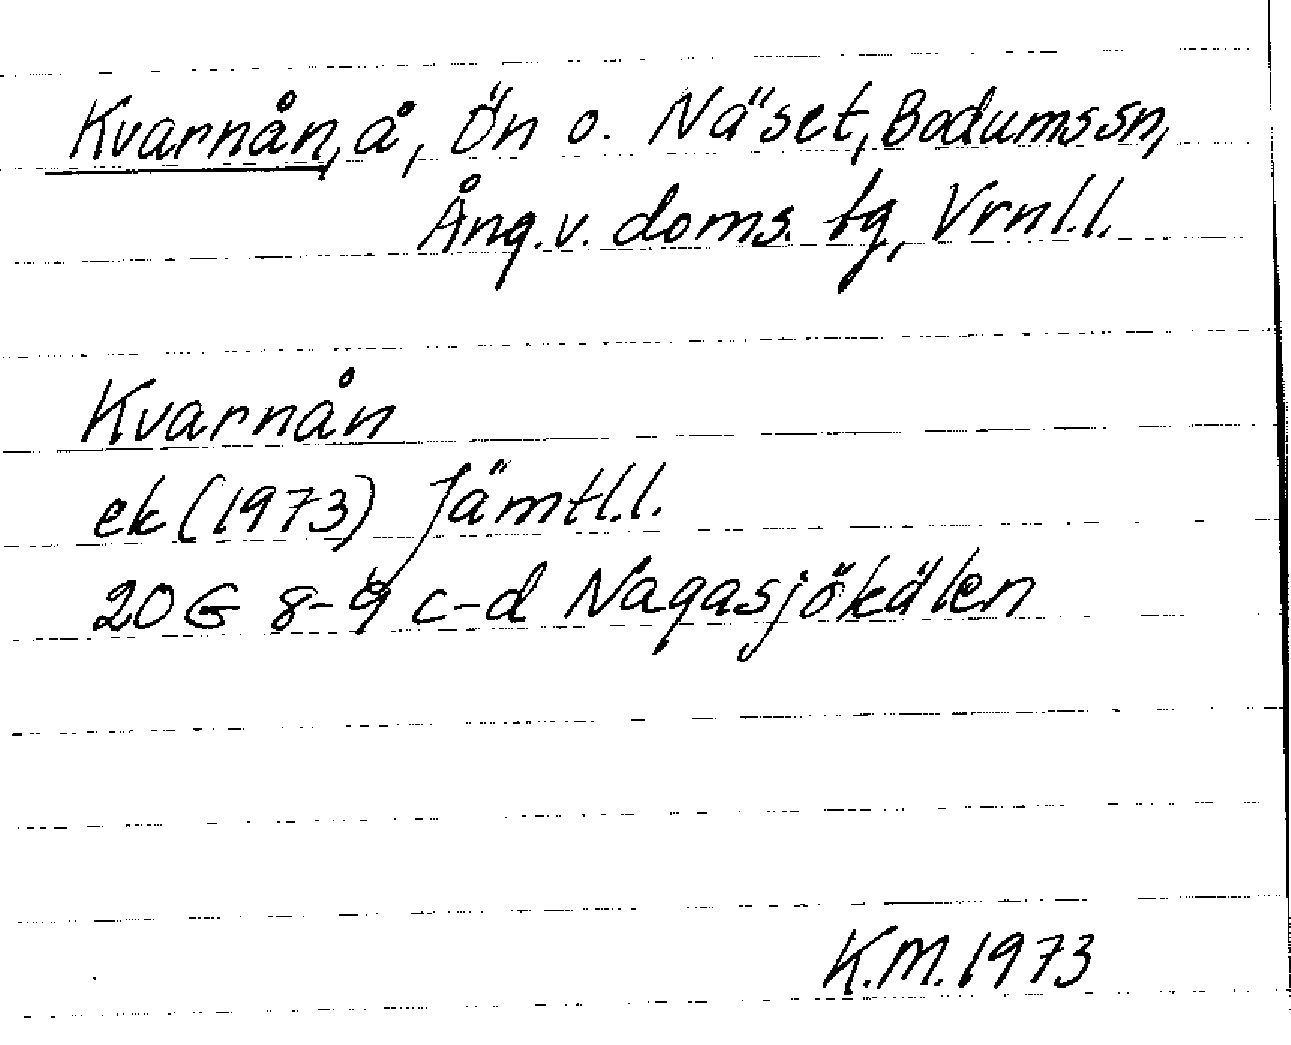 Kvarnån, å, Ön o. Näset, Bodums sn,
Ång.v. doms. tg, Vrnl.l.
Kvarnån
ek (1973) Jämtl.l.
20 G 8-9 c-d Nagasjökälen
K.M. 1973